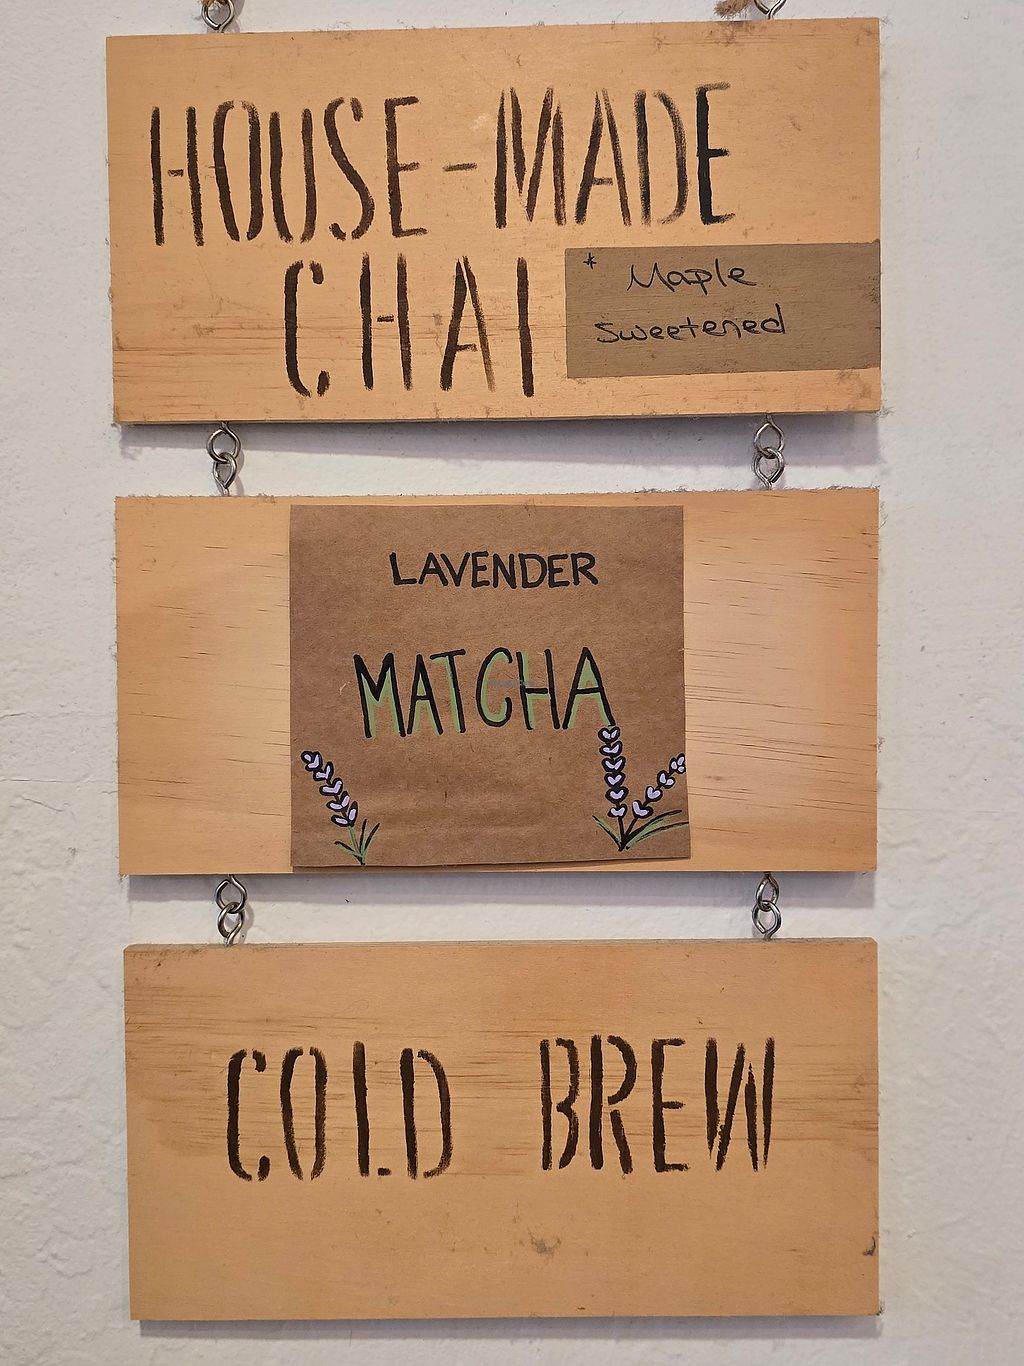 HOUSE-MADE
CHAI
* Maple
Sweetened
LAVENDER
MATCHA
COLD BREW